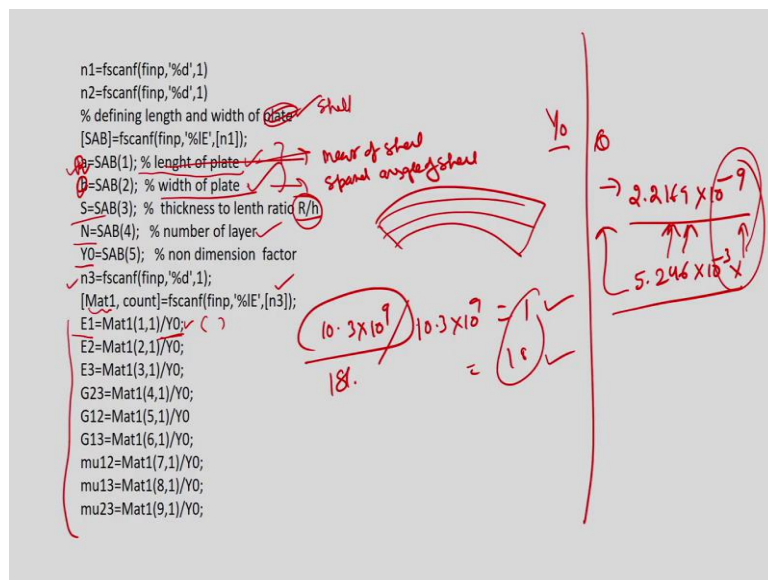 n1=fscanf(finp,'%d',1)
n2=fscanf(finp,'%d',1)
% defining length and width of plate shell
[SAB]=fscanf(finp,'%lE',[n1]);
a=SAB(1); % lenght of plate of shell
b=SAB(2); % width of plate span angle of shell
S=SAB(3); % thickness to lenth ratio R/h
N=SAB(4); % number of layer
Y0=SAB(5); % non dimension factor
n3=fscanf(finp,'%d',1);
[Mat1, count]=fscanf(finp,'%lE',[n3]);
E1=Mat1(1,1)/Y0; ( )
E2=Mat1(2,1)/Y0;
E3=Mat1(3,1)/Y0;
G23=Mat1(4,1)/Y0;
G12=Mat1(5,1)/Y0
G13=Mat1(6,1)/Y0;
mu12=Mat1(7,1)/Y0;
mu13=Mat1(8,1)/Y0;
mu23=Mat1(9,1)/Y0;
10.3×10⁹ / 10.3×10⁹ = 1
181.
= 18
Y0
2.2169×10⁻⁹
5.246×10⁻³ ×